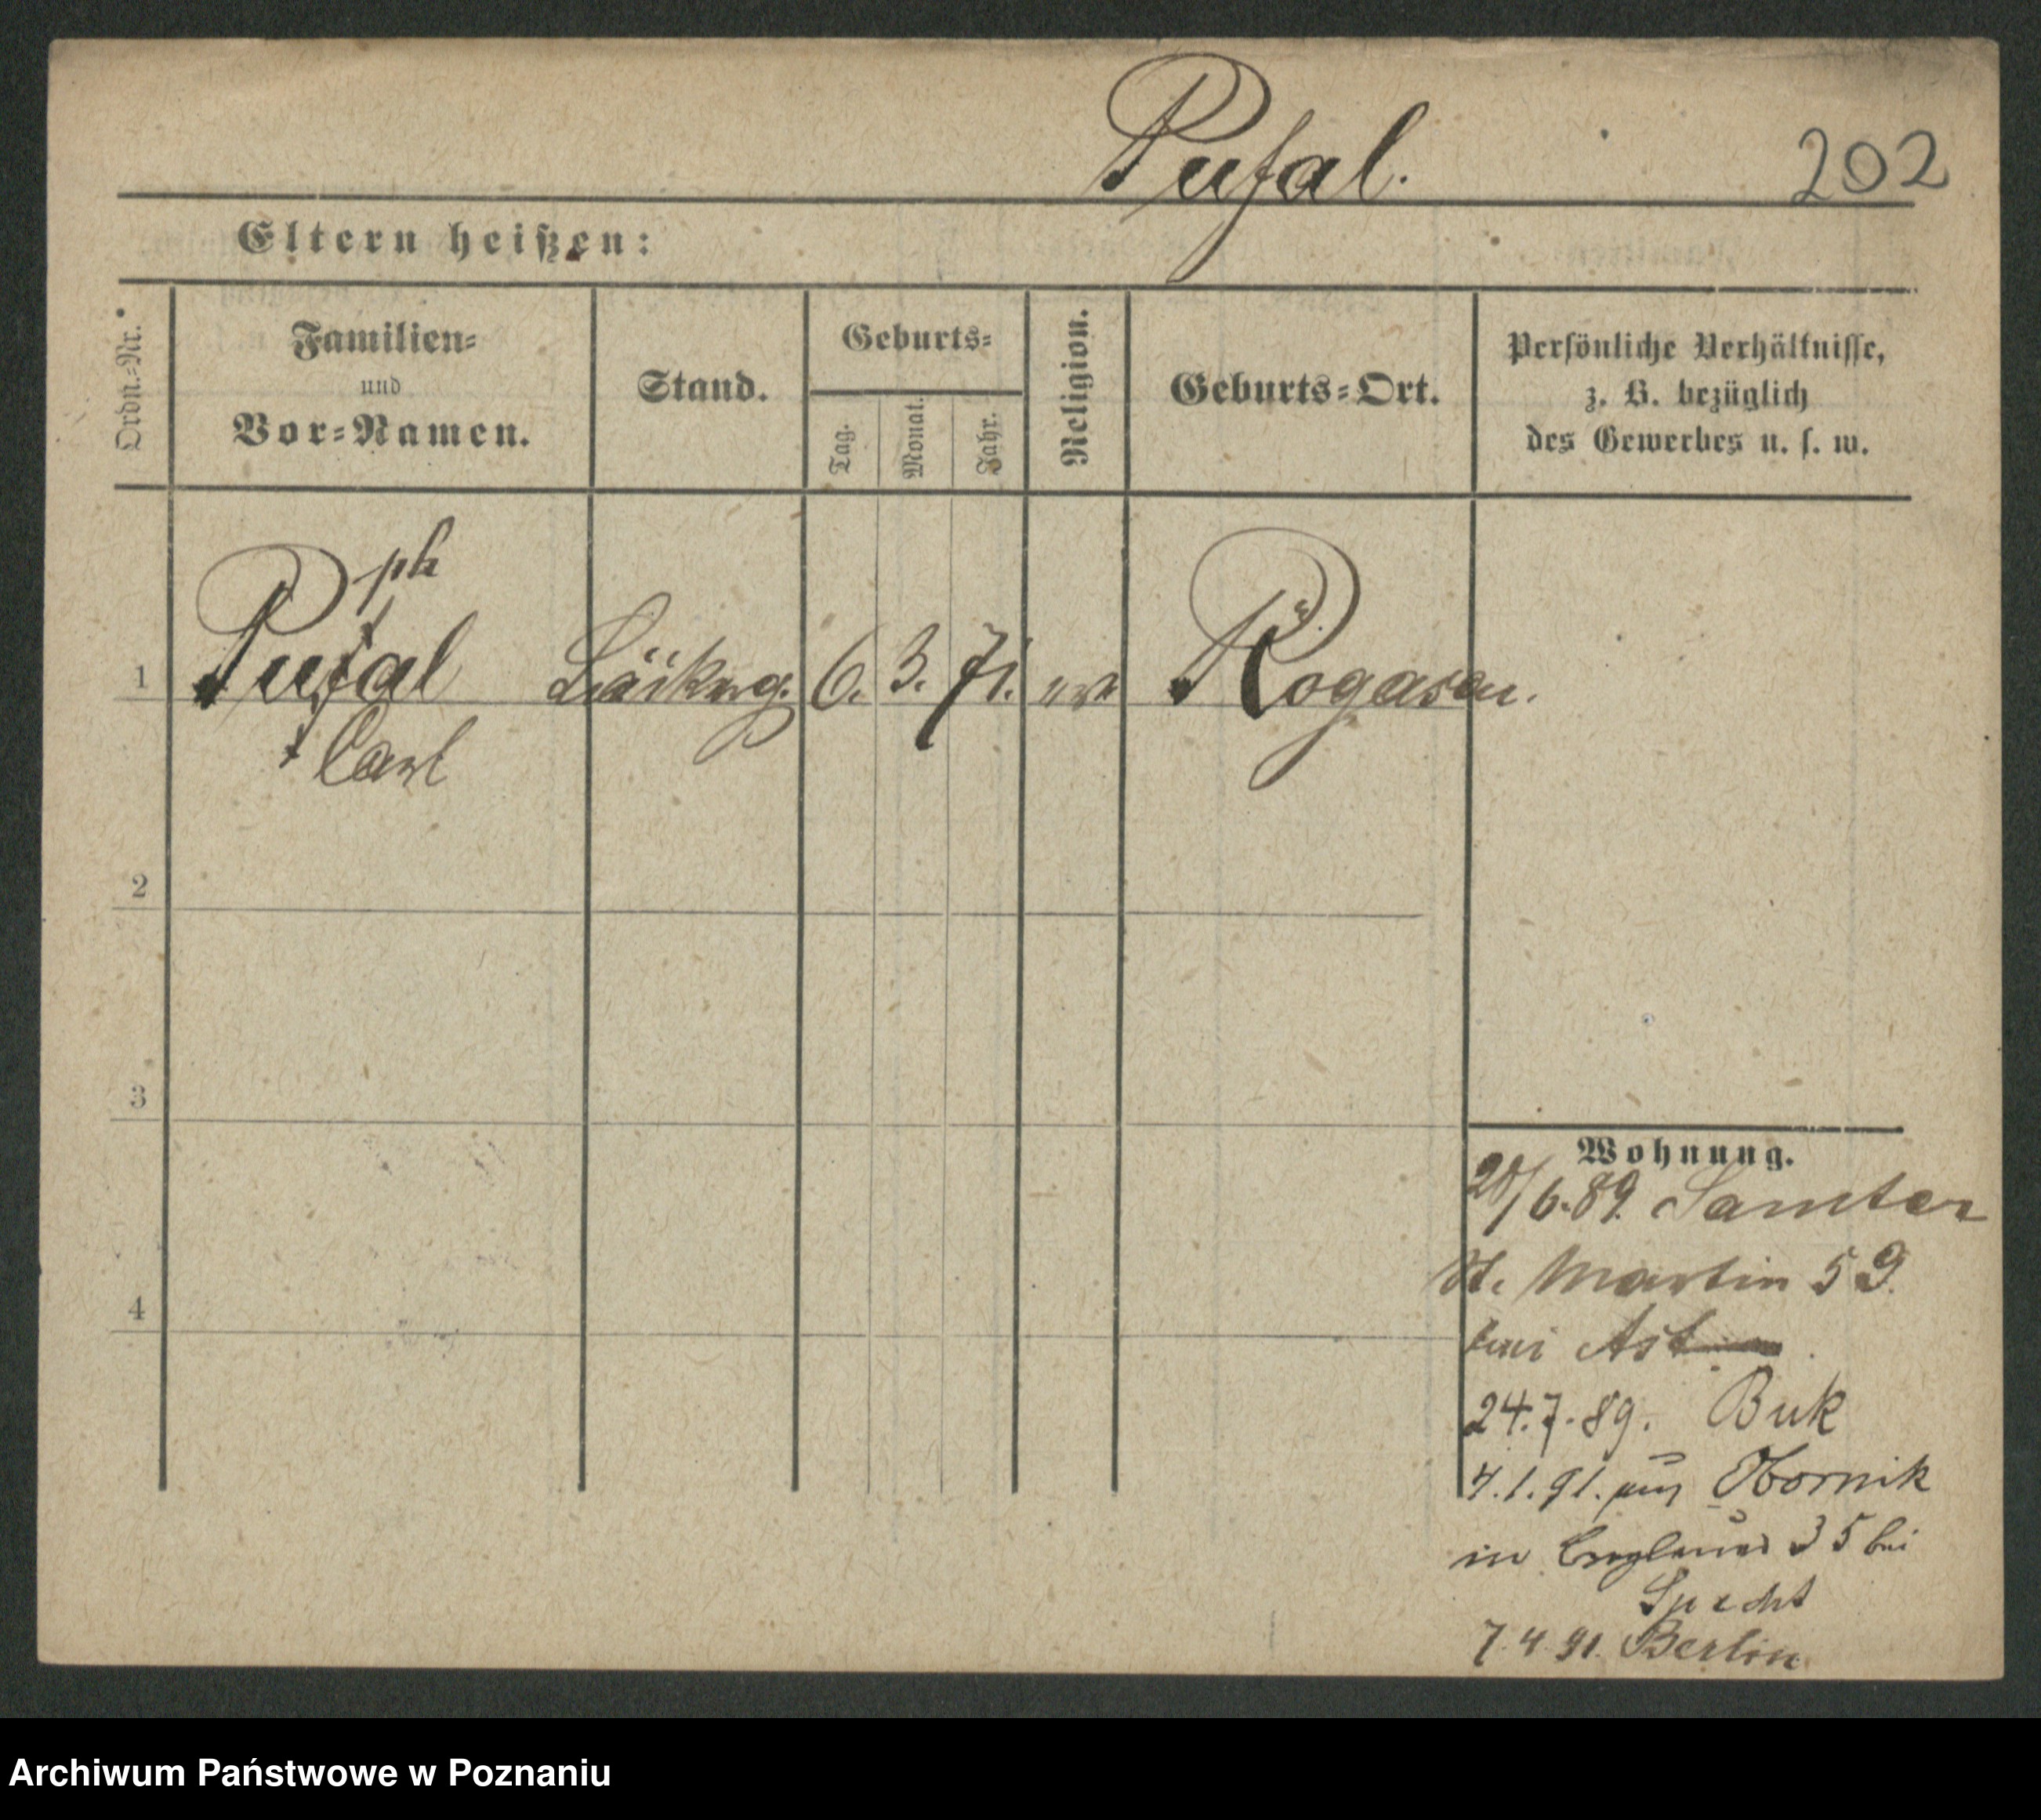 Pufal.
202
Eltern heißen:
Ordn.-Nr.
Familien-
und
Vor-Namen.
Stand.
Geburts-
Tag.
Monat.
Jahr.
Religion.
Geburts-Ort.
Persönliche Verhältnisse,
z. B. bezüglich
des Gewerbes u. s. w.
ph
1 Pufal 6. 3. 71. Rogasen.
Carl
2
3
4
Wohnung.
/6.89. Samter
St. Martin 59.
bei Ast
24.7.89. Buk
4.1.91. aus Obornik
in 35 bei
Specht
7.4.91. Berlin
Archiwum Państwowe w Poznaniu